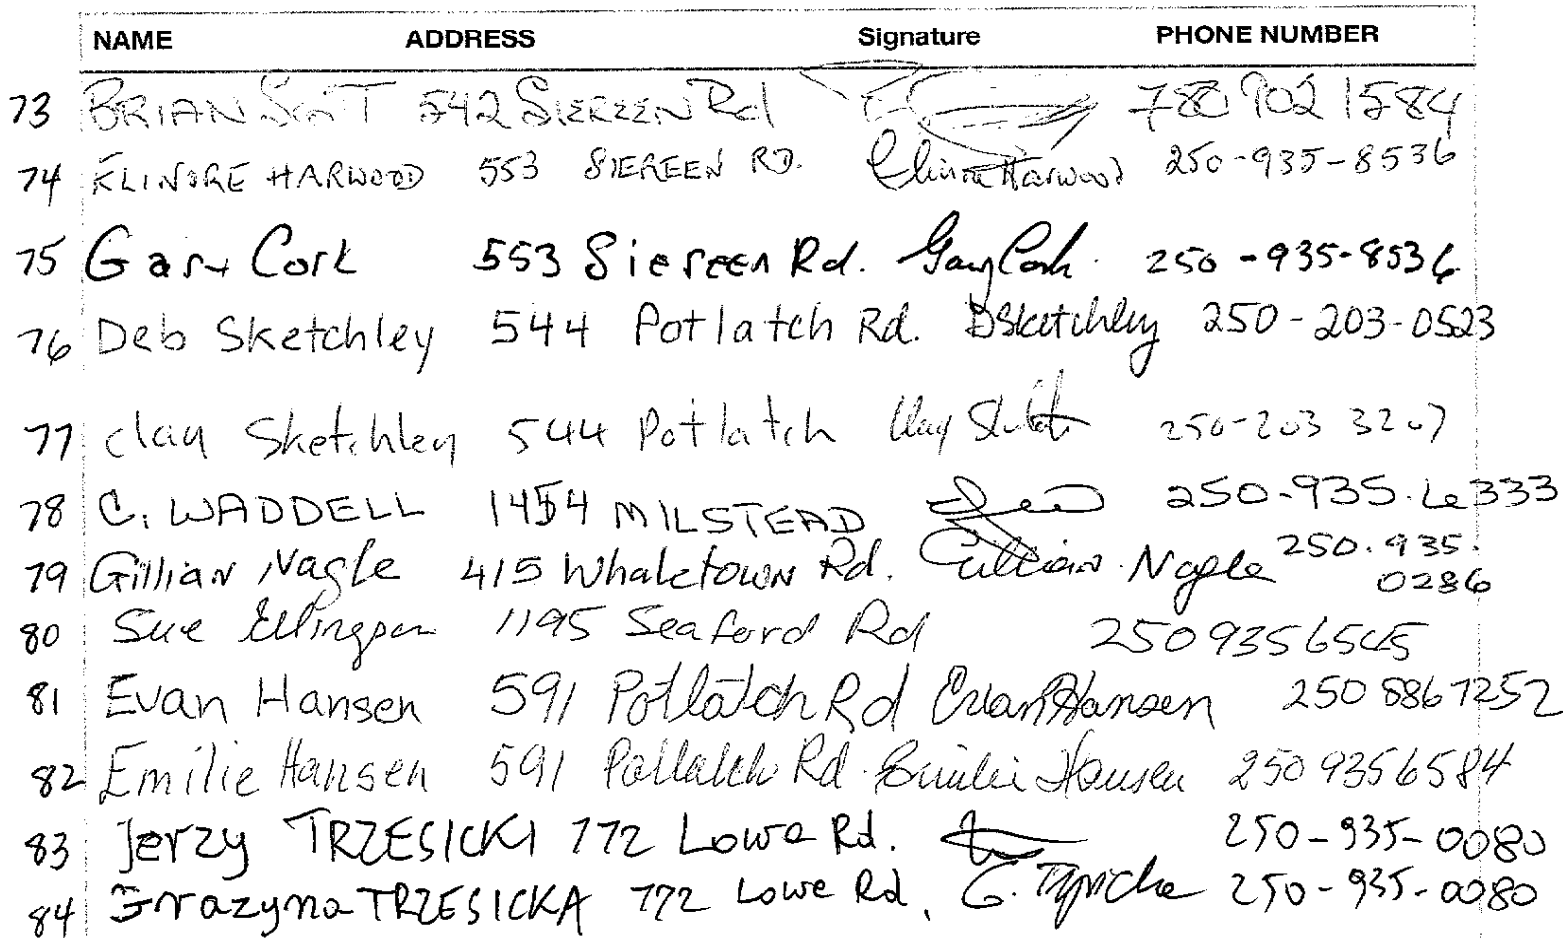 NAME ADDRESS Signature PHONE NUMBER
73 BRIAN SCOTT 542 SIEREEN Rd 780 902 1584
74 HARWOOD 553 SIEREEN RD. Harwood 250-935-8536
75 Gary Cork 553 Siereen Rd. Gary Cork 250-935-8536
76 Deb Sketchley 544 Potlatch Rd. DSketchley 250-203-0523
77 Clay Sketchley 544 Potlatch Clay 250-203 3207
78 C. WADDELL 1454 MILSTEAD 250-935.6333
79 Gillian Nagle 415 Whaletown Rd. Gillian Nagle 250.935.
0286
80 Sue Ellingsen 1195 Seaford Rd 2509356565
81 Evan Hansen 591 Potlatch Rd Evan Hansen 250 8867252
82 Emilie Hansen 591 Potlatch Rd Emilie Hansen 250 9356584
83 Jerzy TRZESICKI 772 Lowe Rd. 250-935-0080
84 Grazyna TRZESICKA 772 Lowe Rd. G. 250-935-0080